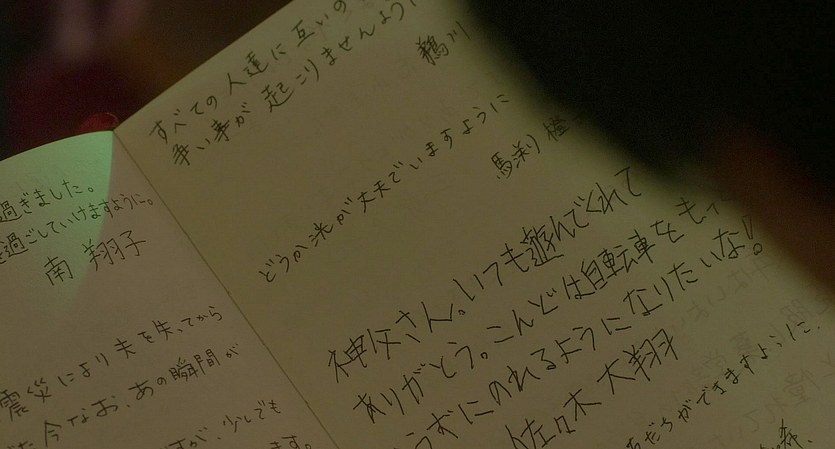 過ぎました。
過ごしていけますように。
南 翔子
震災により夫を失ってから
今なお、あの瞬間が
すが、少しでも
ます。
すべての人達に互いの
争い事が起こりませんように
鵜川
どうか 洸が丈夫でいますように
馬渕
神父さん。いつも遊んでくれて
ありがとう。こんどは自転車をもっ
うずにのれるようになりたいな!
佐々木 大翔
だちができますように、
森、